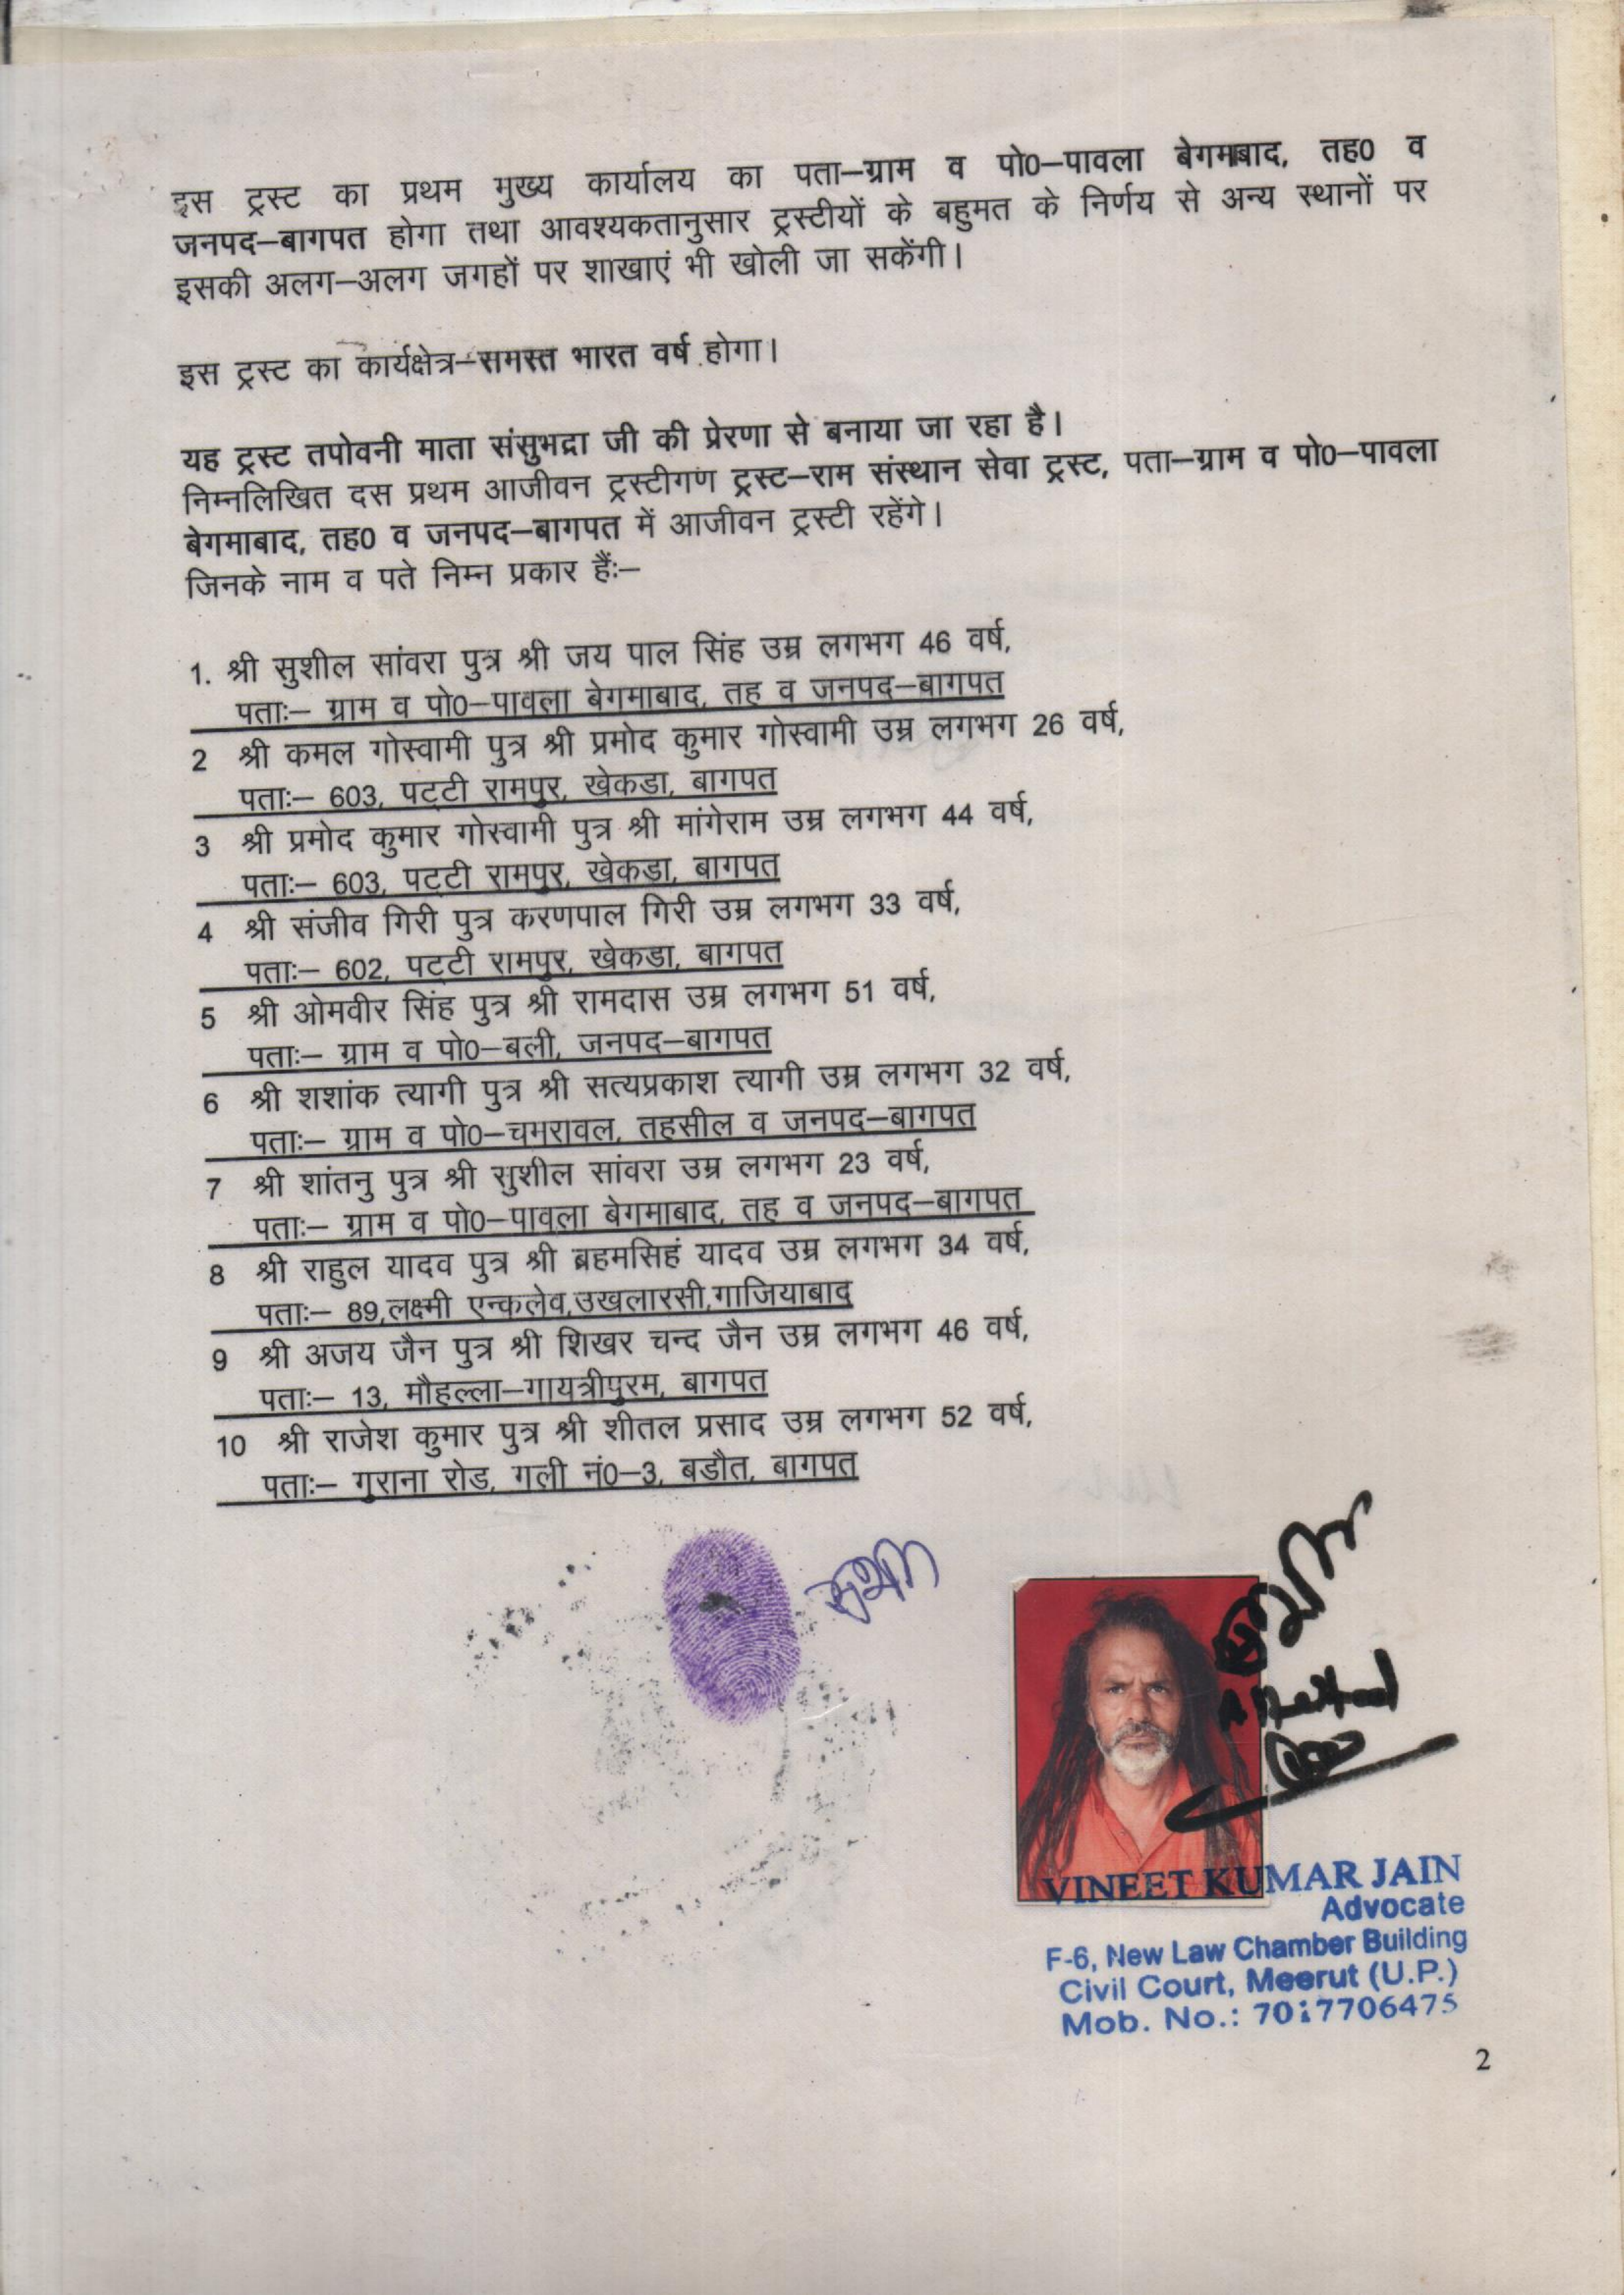 इस ट्रस्ट का प्रथम मुख्य कार्यालय का पता–ग्राम व पो0–पावला बेगमाबाद, तह0 व
जनपद–बागपत होगा तथा आवश्यकतानुसार ट्रस्टीयों के बहुमत के निर्णय से अन्य स्थानों पर
इसकी अलग–अलग जगहों पर शाखाएं भी खोली जा सकेंगी।
इस ट्रस्ट का कार्यक्षेत्र–समस्त भारत वर्ष होगा।
यह ट्रस्ट तपोवनी माता संसुभद्रा जी की प्रेरणा से बनाया जा रहा है।
निम्नलिखित दस प्रथम आजीवन ट्रस्टीगण ट्रस्ट–राम संस्थान सेवा ट्रस्ट, पता–ग्राम व पो0–पावला
बेगमाबाद, तह0 व जनपद–बागपत में आजीवन ट्रस्टी रहेंगे।
जिनके नाम व पते निम्न प्रकार हैंः–
1. श्री सुशील सांवरा पुत्र श्री जय पाल सिंह उम्र लगभग 46 वर्ष,
पताः– ग्राम व पो0–पावला बेगमाबाद, तह व जनपद–बागपत
2 श्री कमल गोस्वामी पुत्र श्री प्रमोद कुमार गोस्वामी उम्र लगभग 26 वर्ष,
पताः– 603, पट्टी रामपुर, खेकडा, बागपत
3 श्री प्रमोद कुमार गोस्वामी पुत्र श्री मांगेराम उम्र लगभग 44 वर्ष,
पताः– 603, पट्टी रामपुर, खेकडा, बागपत
4 श्री संजीव गिरी पुत्र करणपाल गिरी उम्र लगभग 33 वर्ष,
पताः– 602, पट्टी रामपुर, खेकडा, बागपत
5 श्री ओमवीर सिंह पुत्र श्री रामदास उम्र लगभग 51 वर्ष,
पताः– ग्राम व पो0–बली, जनपद–बागपत
6 श्री शशांक त्यागी पुत्र श्री सत्यप्रकाश त्यागी उम्र लगभग 32 वर्ष,
पताः– ग्राम व पो0–चमरावल, तहसील व जनपद–बागपत
7 श्री शांतनु पुत्र श्री सुशील सांवरा उम्र लगभग 23 वर्ष,
पताः– ग्राम व पो0–पावला बेगमाबाद, तह व जनपद–बागपत
8 श्री राहुल यादव पुत्र श्री ब्रहमसिहं यादव उम्र लगभग 34 वर्ष,
पताः– 89,लक्ष्मी एन्कलेव,उखलारसी,गाजियाबाद
9 श्री अजय जैन पुत्र श्री शिखर चन्द जैन उम्र लगभग 46 वर्ष,
पताः– 13, मौहल्ला–गायत्रीपुरम, बागपत
10 श्री राजेश कुमार पुत्र श्री शीतल प्रसाद उम्र लगभग 52 वर्ष,
पताः– गुराना रोड, गली नं0–3, बडौत, बागपत
VINEET KUMAR JAIN
Advocate
F-6, New Law Chamber Building
Civil Court, Meerut (U.P.)
Mob. No.: 7017706475
2